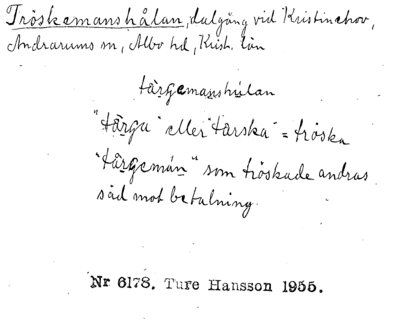 Tröskemanshålan, dalgång vid Kristinehov,
Andrarums sn, Albo hd, Krist. län
tärgemanshålan
"tärga" eller "tärska" = tröska
"tärgemän" som tröskade andras
säd mot betalning.
Nr 6178. Ture Hansson 1955.